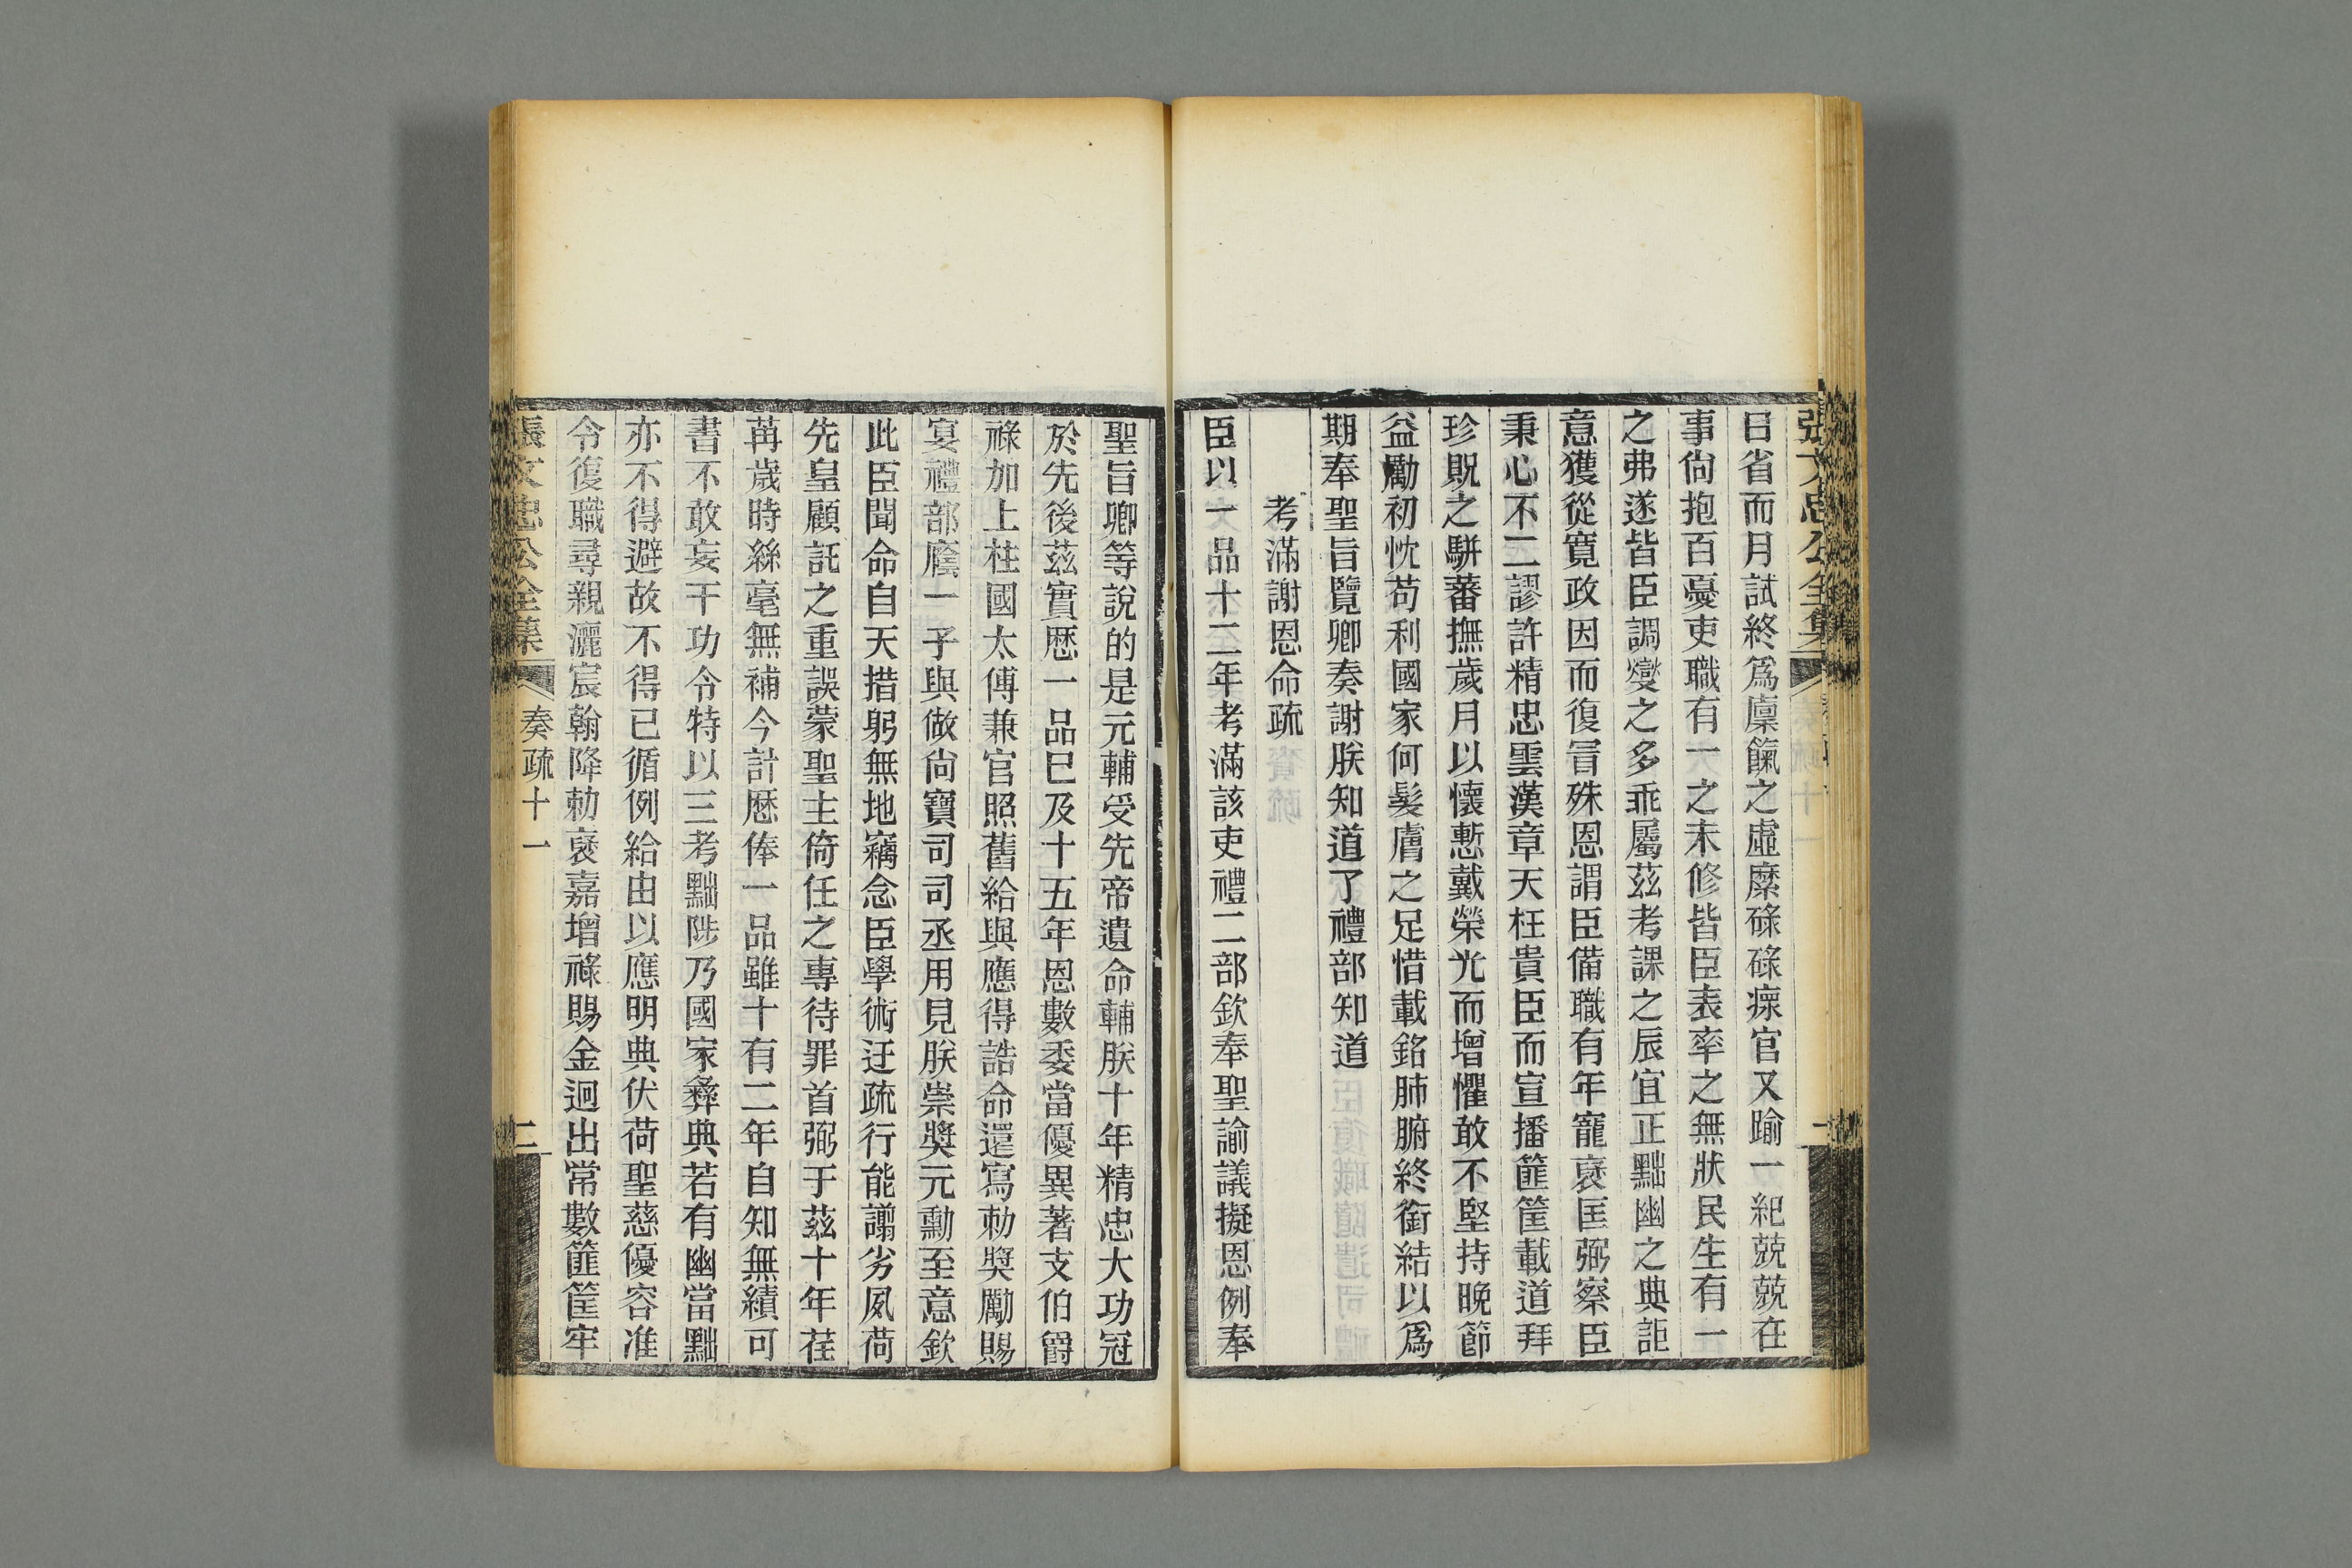 日省而月試終爲廩餼之虛糜碌碌瘝官又踰一紀兢兢在
事尙抱百憂吏職有一之未修皆臣表率之無狀民生有一
之弗遂皆臣調爕之多乖屬茲考課之辰宜正黜幽之典詎
意獲從寬政因而復冒殊恩謂臣備職有年寵裦匡弼察臣
秉心不二謬許精忠雲漢章天枉貴臣而宣播篚筐載道拜
珍貺之駢蕃撫歲月以懷慙戴榮光而增懼敢不堅持晚節
益勵初忱苟利國家何髮膚之足惜載銘肺腑終銜結以爲
期奉聖旨覽卿奏謝朕知道了禮部知道
考滿謝恩命疏
臣以一品十二年考滿該吏禮二部欽奉聖諭議擬恩例奉
聖旨卿等說的是元輔受先帝遺命輔朕十年精忠大功冠
於先後茲實歷一品巳及十五年恩數委當優異著支伯爵
祿加上柱國太傅兼官照舊給與應得誥命還寫勅獎勵賜
宴禮部廕一子與做尙寶司司丞用見朕崇獎元勳至意欽
此臣聞命自天措躬無地竊念臣學術迂疏行能譾劣夙荷
先皇顧託之重誤蒙聖主倚任之專待罪首弼于茲十年荏
苒歲時絲毫無補今計歷俸一品雖十有二年自知無績可
書不敢妄干功令特以三考黜陟乃國家彝典若有幽當黜
亦不得避故不得已循例給由以應明典伏荷聖慈優容准
令復職尋親灑宸翰降勅裦嘉增祿賜金迥出常數篚筐牢
張文忠公全集 奏疏十一 二